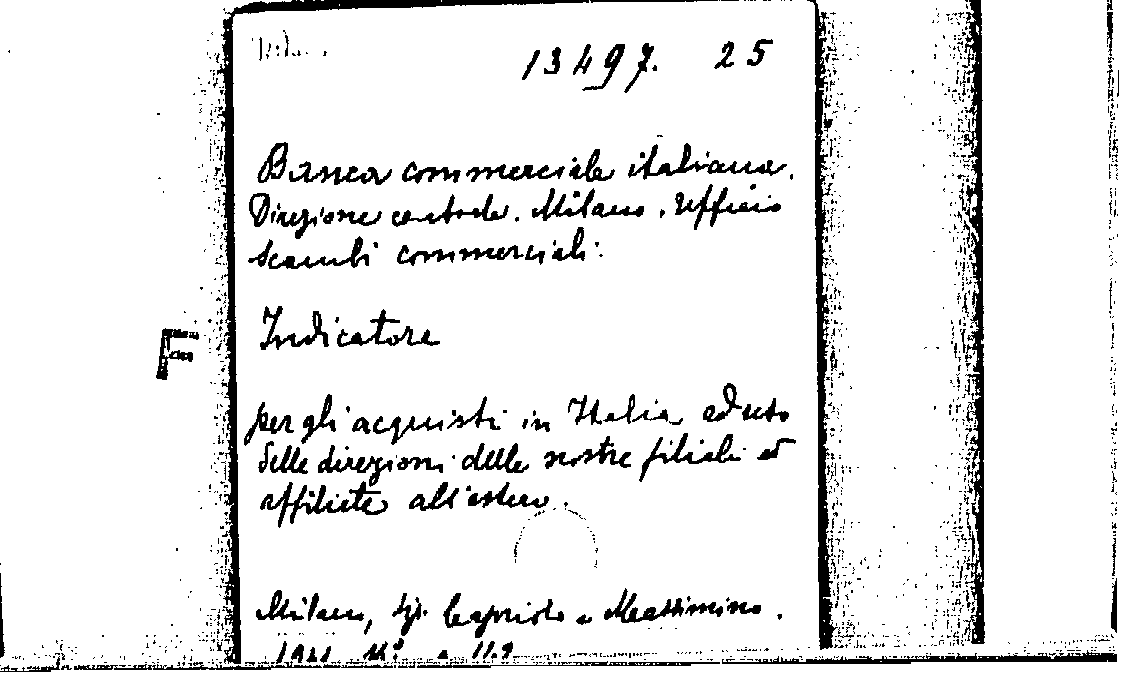 13497. 25
Banca commerciale italiana.
Direzione centrale. Milano. Ufficio
scambi commerciali.
Indicatore
per gli acquisti in Italia ad uso
delle direzioni delle nostre filiali ed
affiliate all'estero.
Milano, tip. Capriolo e Massimino.
F